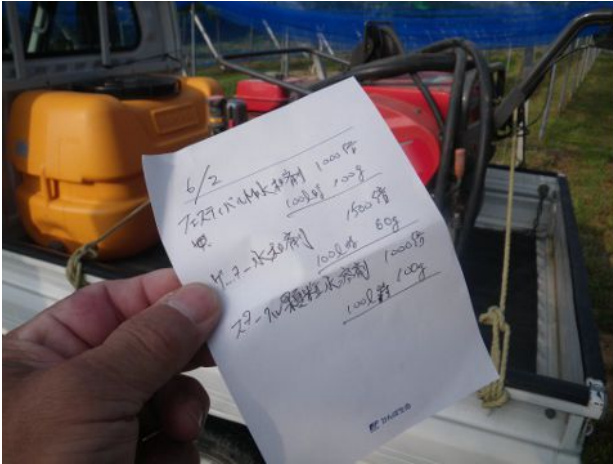 6/2
フェスティバルM水和剤 1000倍
100l時 100g
ゲッター水和剤 1500倍
100l時 60g
スタークル顆粒水溶剤 1000倍
100l時 100g